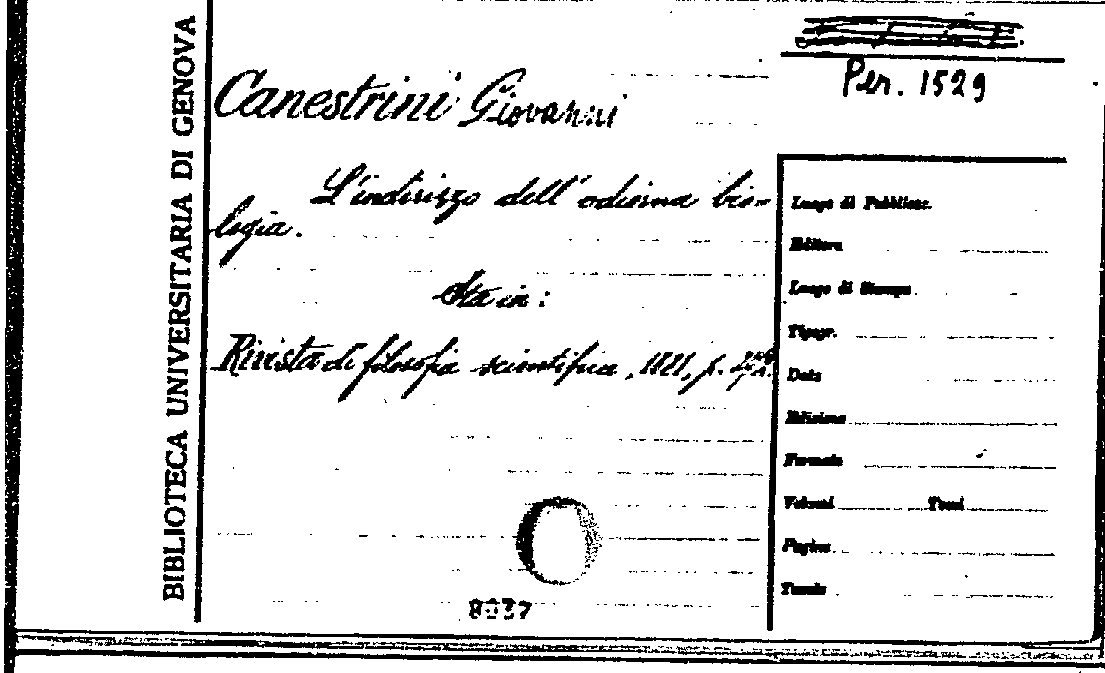 BIBLIOTECA UNIVERSITARIA DI GENOVA
Per. 1529
Canestrini Giovanni
L'indirizzo dell'odierna bio-
logia.
Sta in:
Rivista di filosofia scientifica, 1881, p.
Luogo di Pubblicaz.
Editore
Luogo di Stampa
Tipogr.
Data
Edizione
Formato
Volumi Tomi
Pagine
Tavole
8037